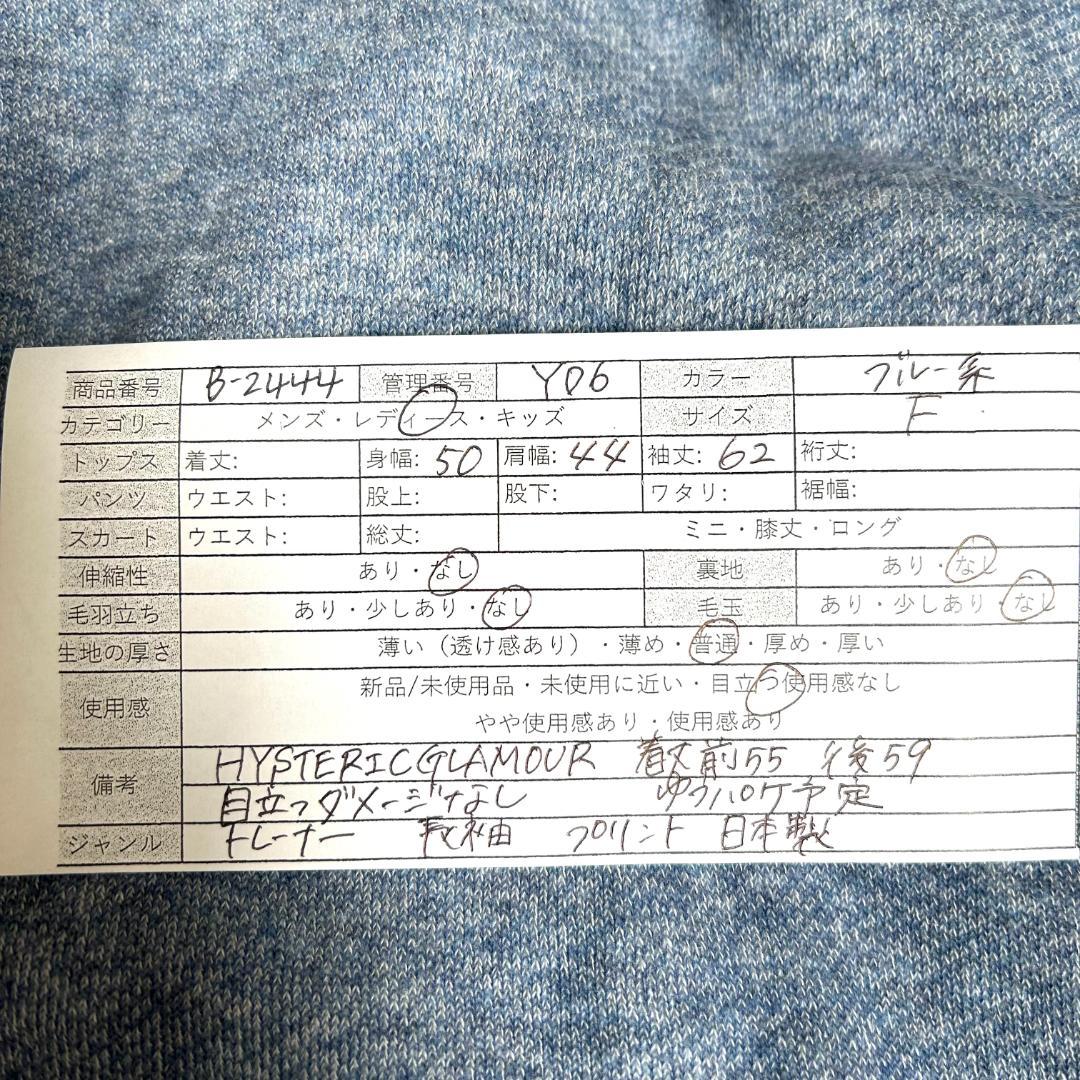 商品番号 B-2444 管理番号 YO6 カラー ブルー系
カテゴリー メンズ・レディース・キッズ サイズ F
トップス 着丈: 身幅: 50 肩幅: 44 袖丈: 62 裄丈:
パンツ ウエスト: 股上: 股下: ワタリ: 裾幅:
スカート ウエスト: 総丈: ミニ・膝丈・ロング
伸縮性 あり・なし 裏地 あり・なし
毛羽立ち あり・少しあり・なし 毛玉 あり・少しあり・なし
生地の厚さ 薄い（透け感あり）・薄め・普通・厚め・厚い
使用感 新品/未使用品・未使用に近い・目立つ使用感なし
やや使用感あり・使用感あり
備考 HYSTERIC GLAMOUR 着丈前55 後59
目立つダメージなし ゆうパケ予定
ジャンル トレーナー 長袖 プリント 日本製